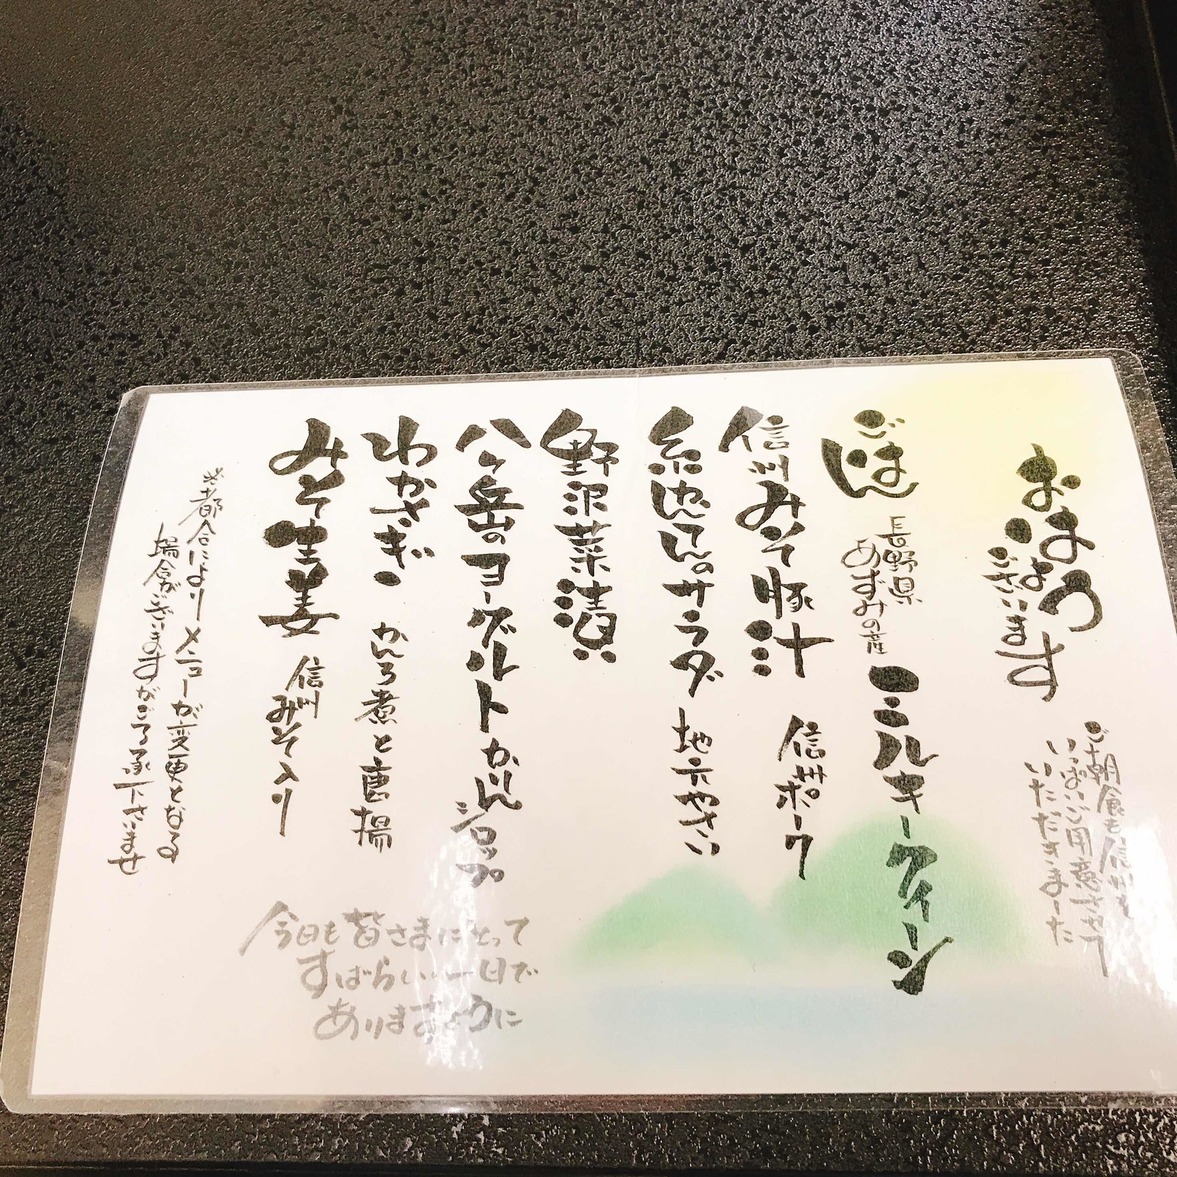 おはよう
ございます
ご朝食も信州を
いっぱいご用意させて
いただきました
ごはん 長野県あずみの産 ミルキークイーン
信州みそ豚汁 信州ポーク
糸かんてんのサラダ 地元やさい
野沢菜漬
八ヶ岳のヨーグルト かりんシロップ
わかさぎ かんろ煮と唐揚
みそ生姜 信州みそ入り
※都合によりメニューが変更となる
場合がございますがご了承下さいませ
今日も皆さまにとって
すばらしい一日で
ありますように